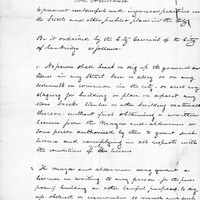 An Ordinance
to prevent unlawful and injurious practices in
the Streets and other public places in the City
Be it ordained by the City Council of the City
of Cambridge as follows:
1 No person shall break or dig up the ground or
stone in any Street lane or alley or on any
sidewalk or common in the city, or erect any
staging for building, or place or deposit any
stone bricks timber or other building materials
thereon without first obtaining a written
license from the Mayor and aldermen or
some person authorized by them to grant such
license and complying in all respects with
the conditions of the license
2 The Mayor and aldermen may grant a
license in writing to any person for the pur-
pose of building or other lawful purpose to dig
up, obstruct or incumber so much and such